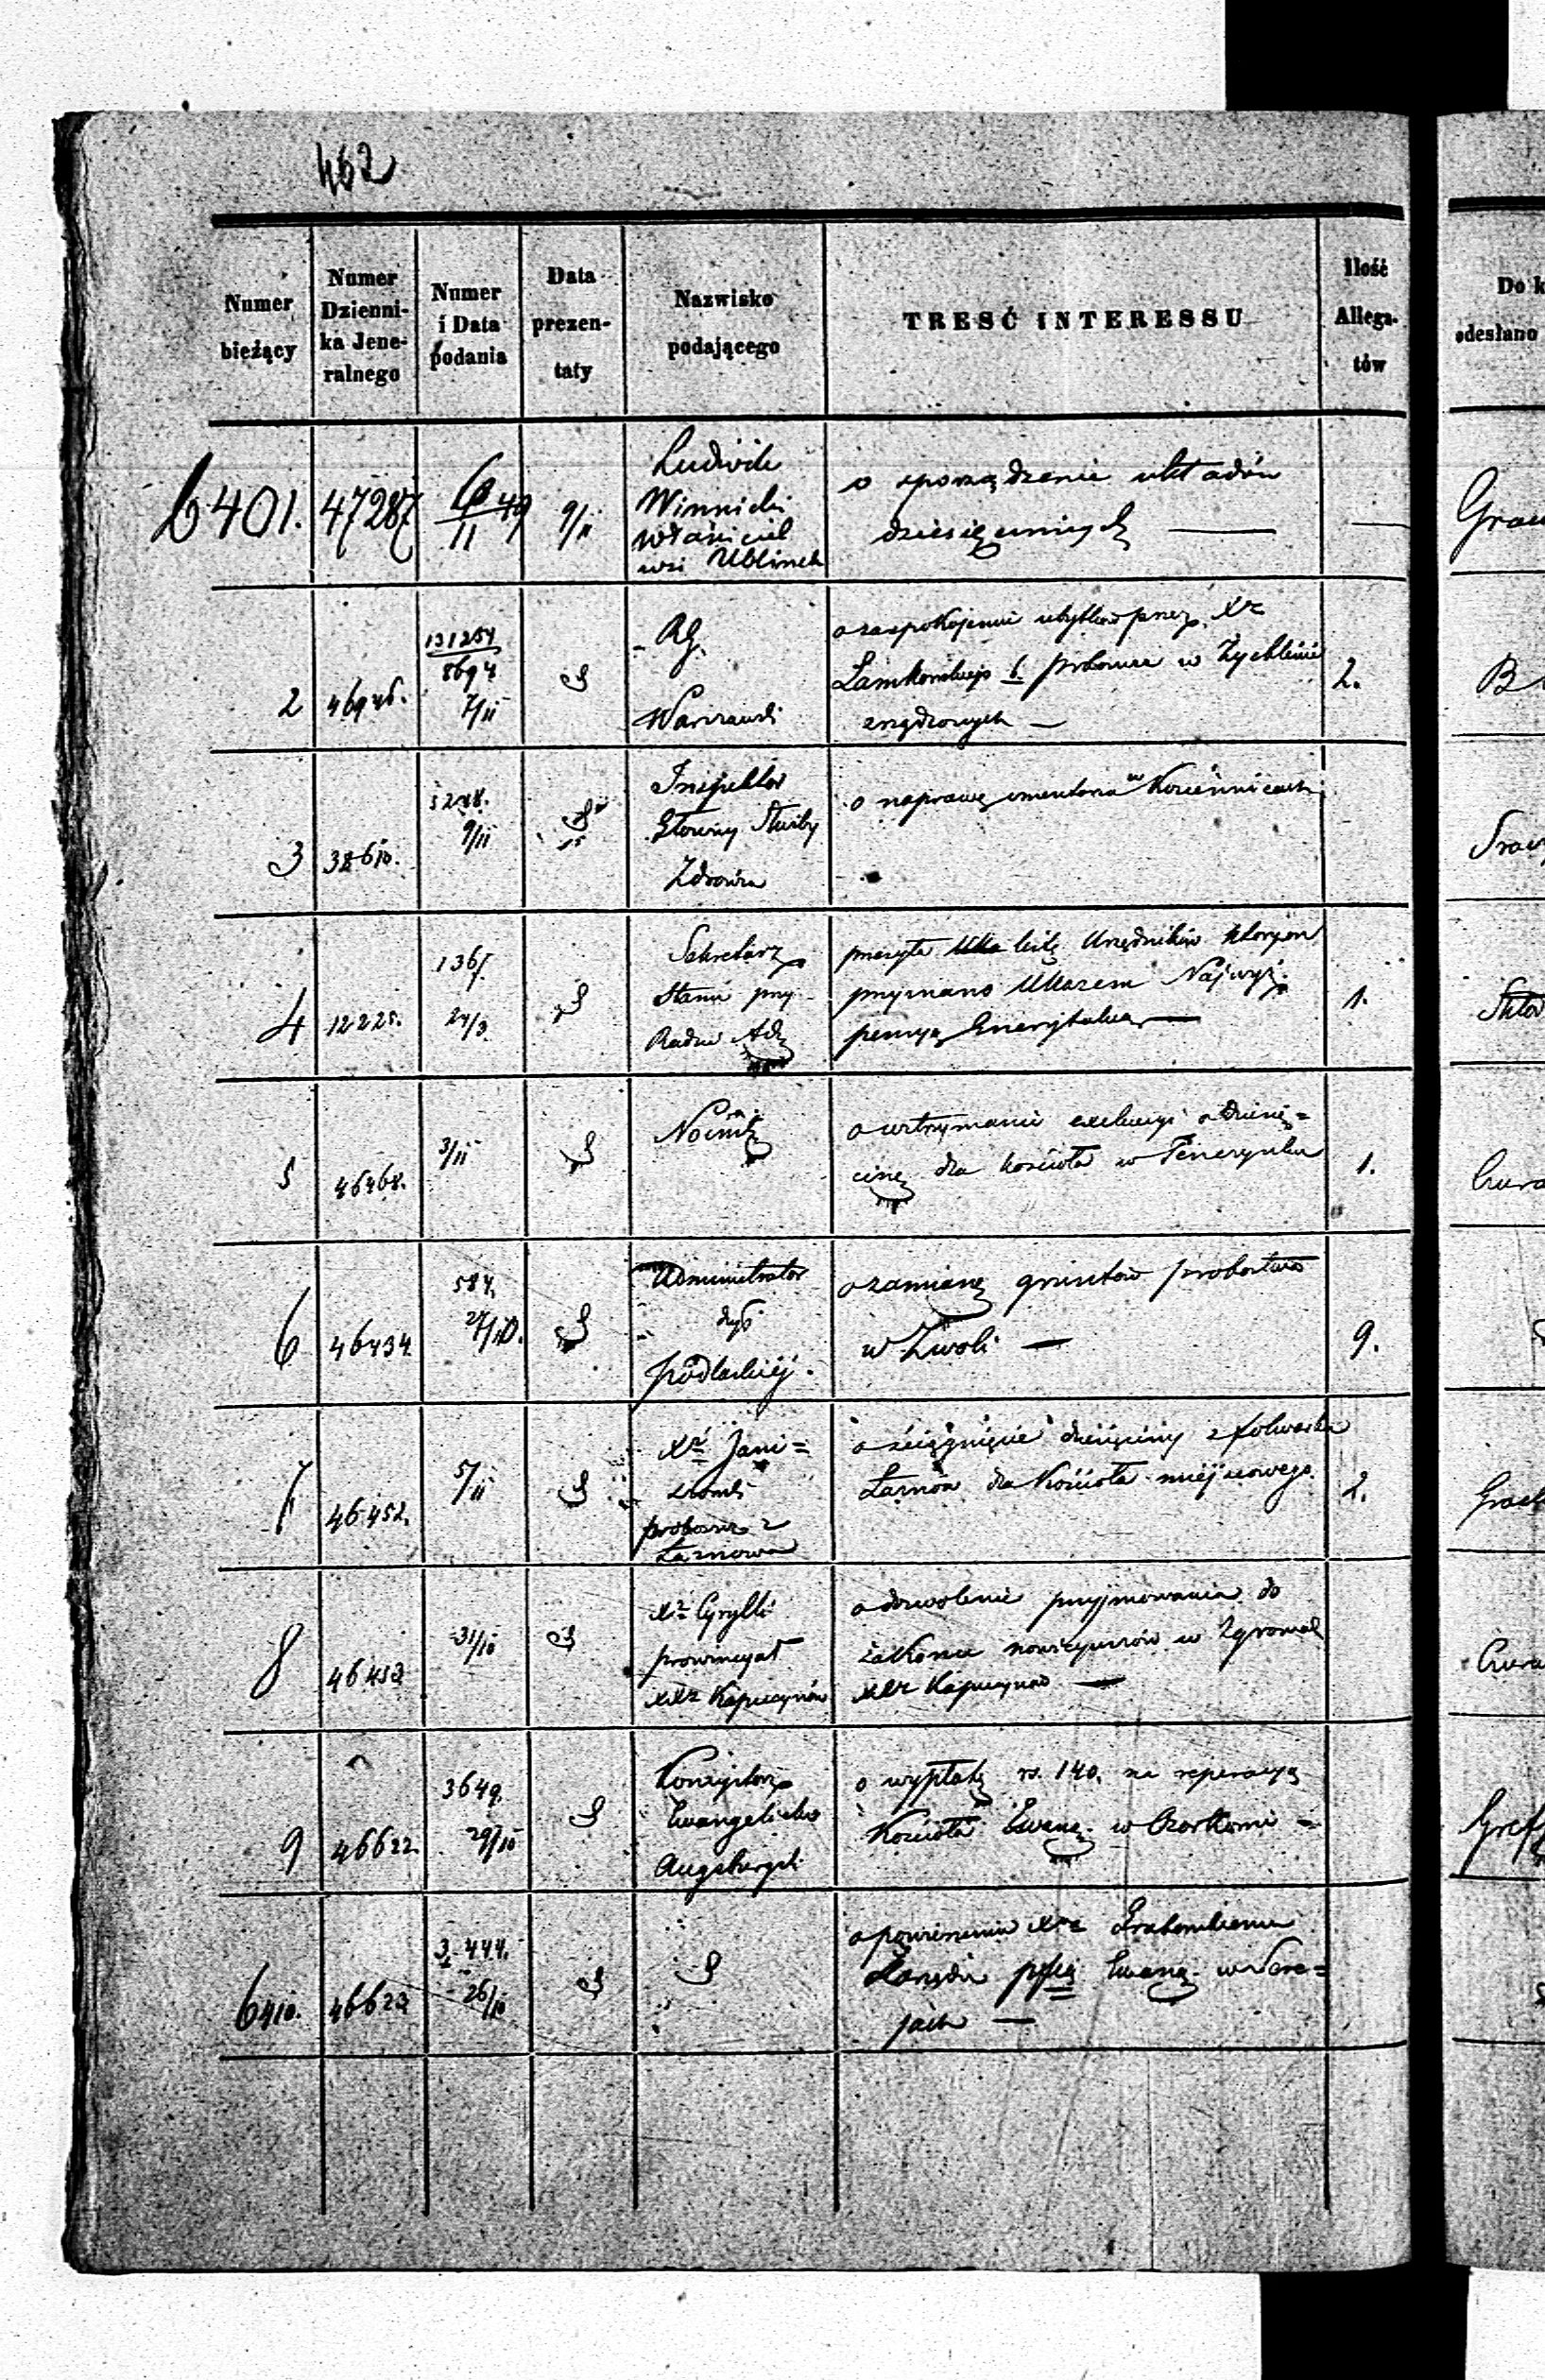 462
Numer bieżący
Numer Dzienni-ka Jene-ralnego
Numer i Data podania
Data prezen-taty
Nazwisko podającego
TREŚĆ INTERESSU
Ilość Allega-tów
Do k
odesłano
6401.
47287
6/11 49
9/11
Ludwik
Winnicki
właściciel
wsi Ublinek
o sporządzenie układów
dziesięcinnych —
2
131254
8694
7/11
Rg.
Warszawski
o zaspokojenie ubytków przez Xa
b. proboszcza w Żychlinie
zrządzonych —
2.
3
38610.
9/11
Inspektor
Główny Służby
Zdrowia
o naprawę cmentarza w Kozienicach
4
12225.
1365
24/3.
Sekretarz
Stanu przy
Radzie Adz
przesyła listę Urzędników którym
przyznano Ukazem Najwyż.
pensyą Emerytalną —
1.
5
46468.
3/11
o wstrzymanie exekucyi o dziesię=
cinę dla kościoła w
1.
6
46434
584.
27/10.
Administrator
dyó
podlaskiej.
o zamianę gruntów probostwa
w Zwoli —
9.
7
46452.
5/11
Xdz Jani=
proboszcz z
Łarnowa
o ściągnięcie dziesięciny z folwarku
Łarnów dla Kościoła miejscowego.
2.
8
46453
31/10
Xdz Cyrylli
prowincyał
XXdz Kapucynów
o dozwolenie przyjmowania do
zakonu nowicyuszów w Zgromad
XXdz Kapucynów —
9
46622
3649.
29/10
Konsystorz
Ewangelicko
Augsburgski
o wypłatę rs. 140. na reperacyą
Kościoła Ewang. w Ozorkowie =
6410.
46623
3444.
26/10
o powierzeniu Xdz
Zarządu pffią Ewang. w Sere=
jach —